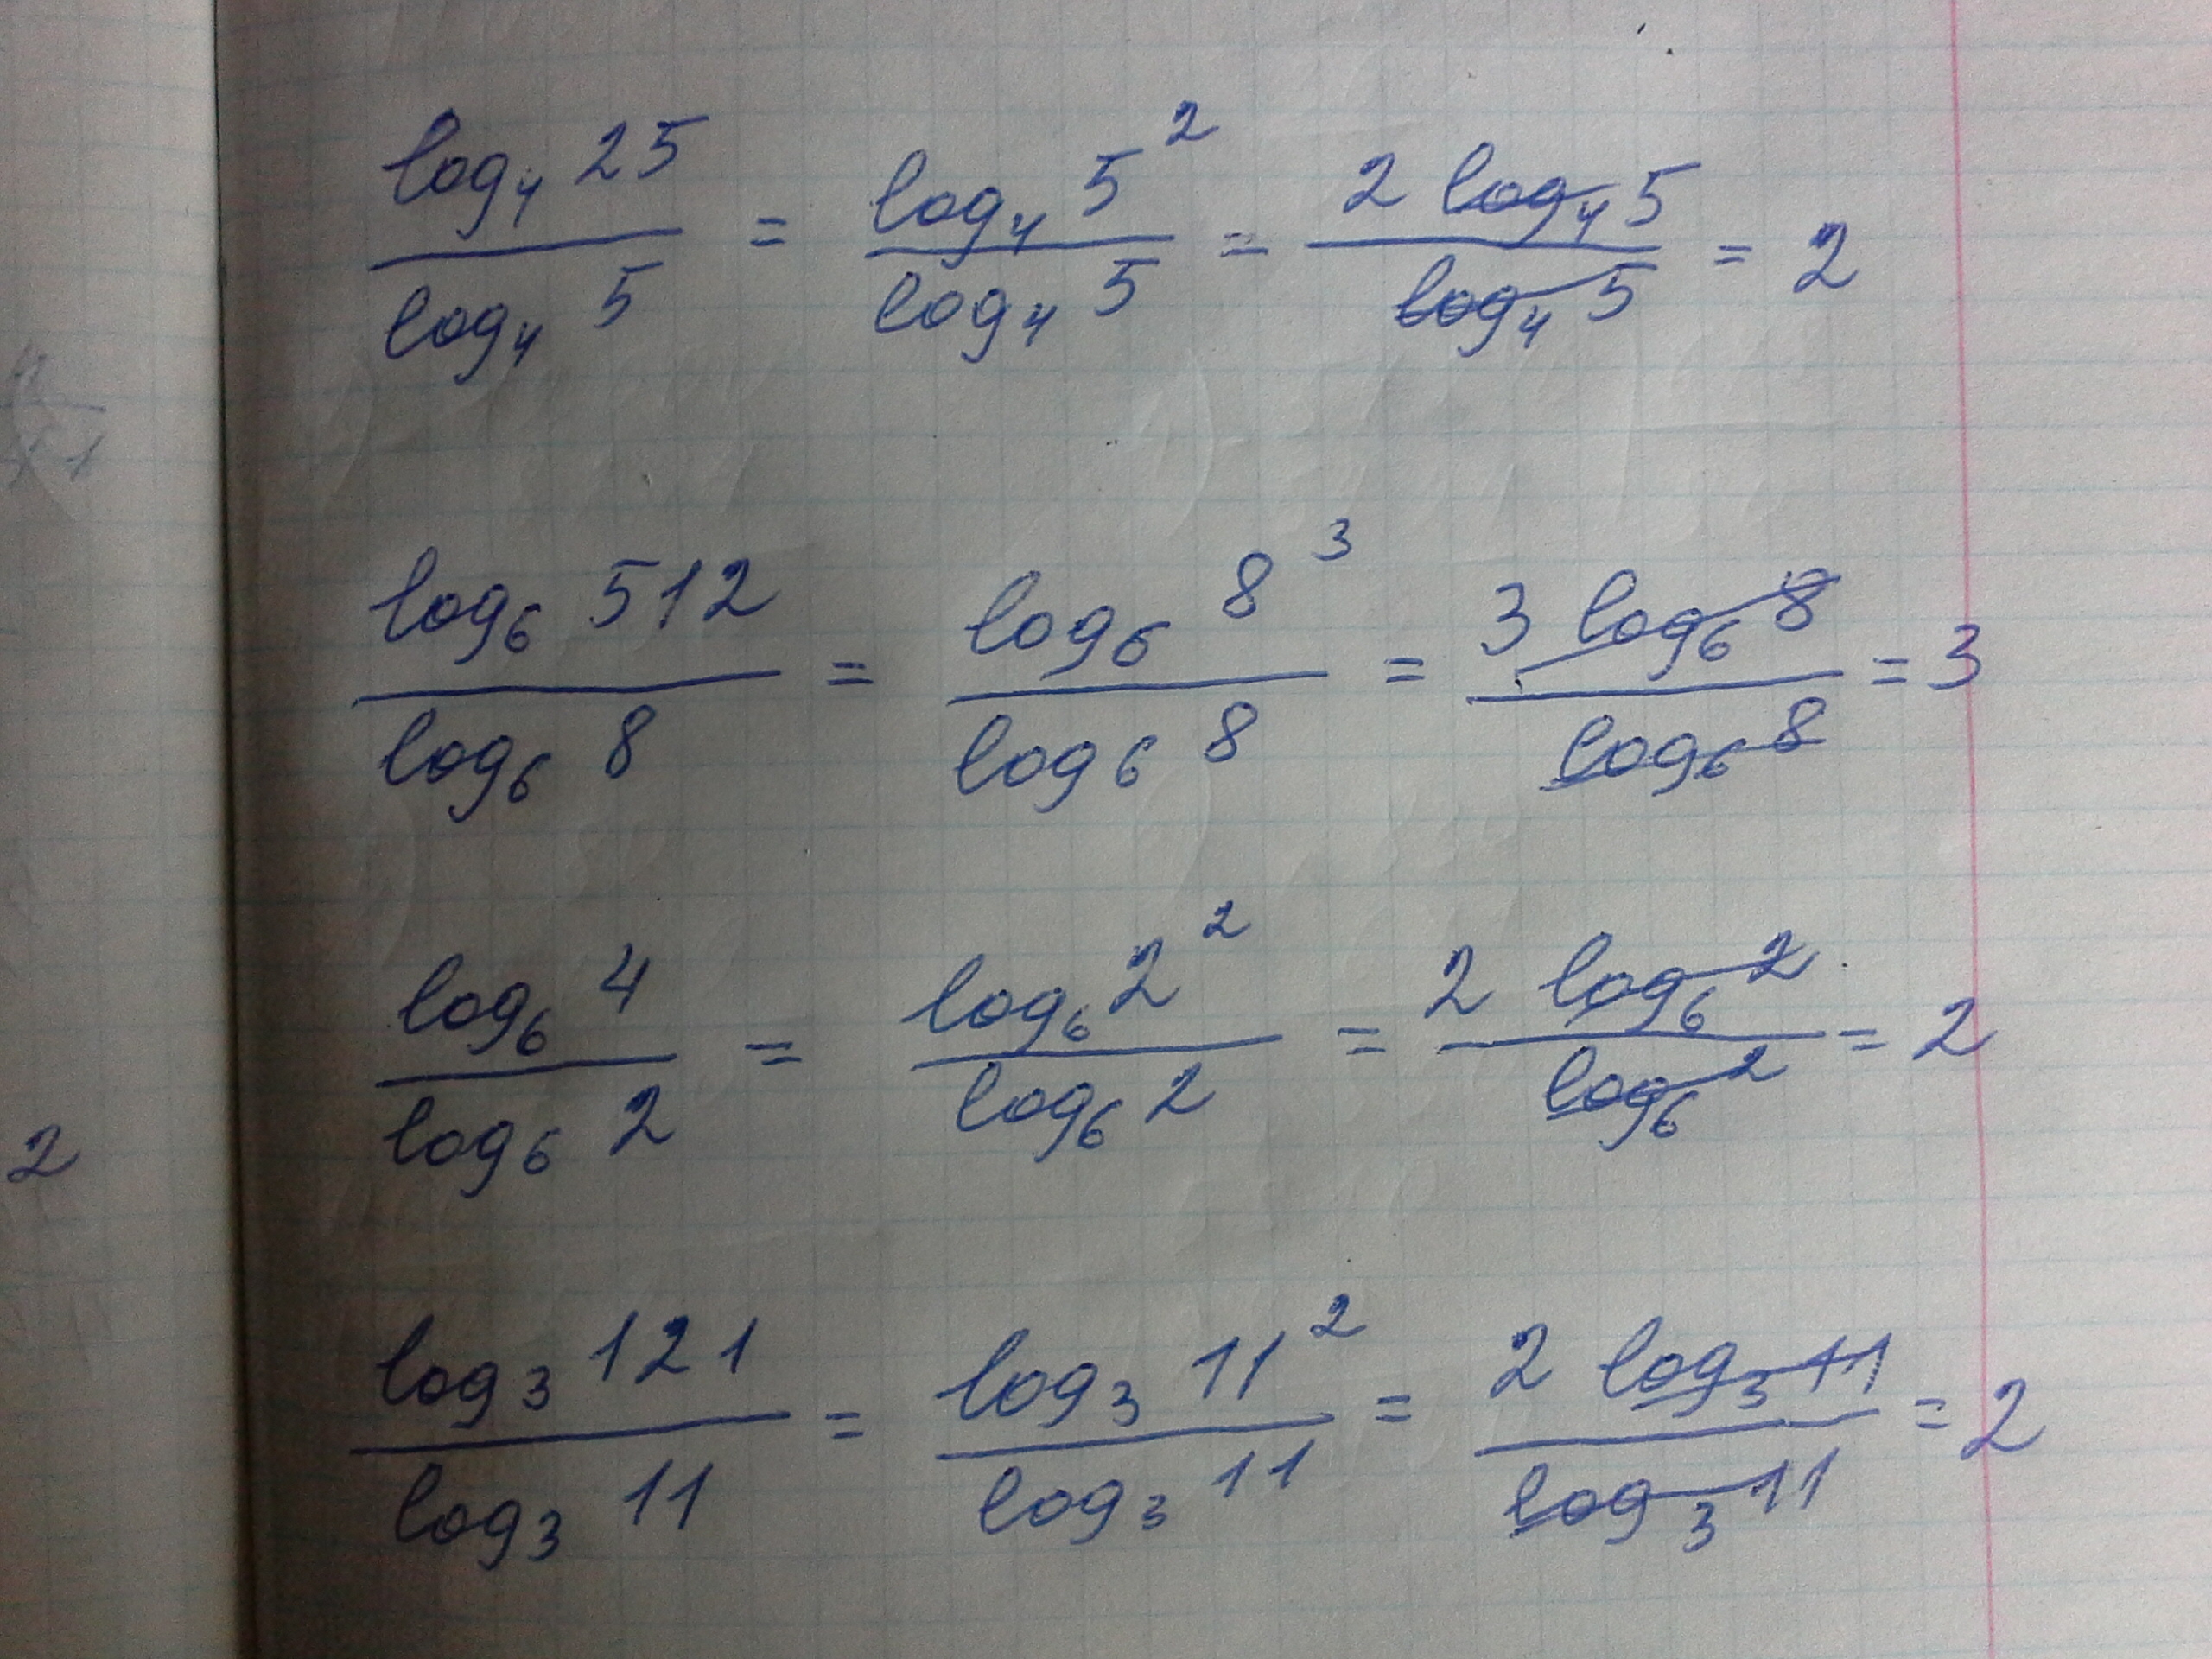 log₄ 25 / log₄ 5 = log₄ 5² / log₄ 5 = 2 log₄ 5 / log₄ 5 = 2
log₆ 512 / log₆ 8 = log₆ 8³ / log₆ 8 = 3 log₆ 8 / log₆ 8 = 3
log₆ 4 / log₆ 2 = log₆ 2² / log₆ 2 = 2 log₆ 2 / log₆ 2 = 2
2
log₃ 121 / log₃ 11 = log₃ 11² / log₃ 11 = 2 log₃ 11 / log₃ 11 = 2